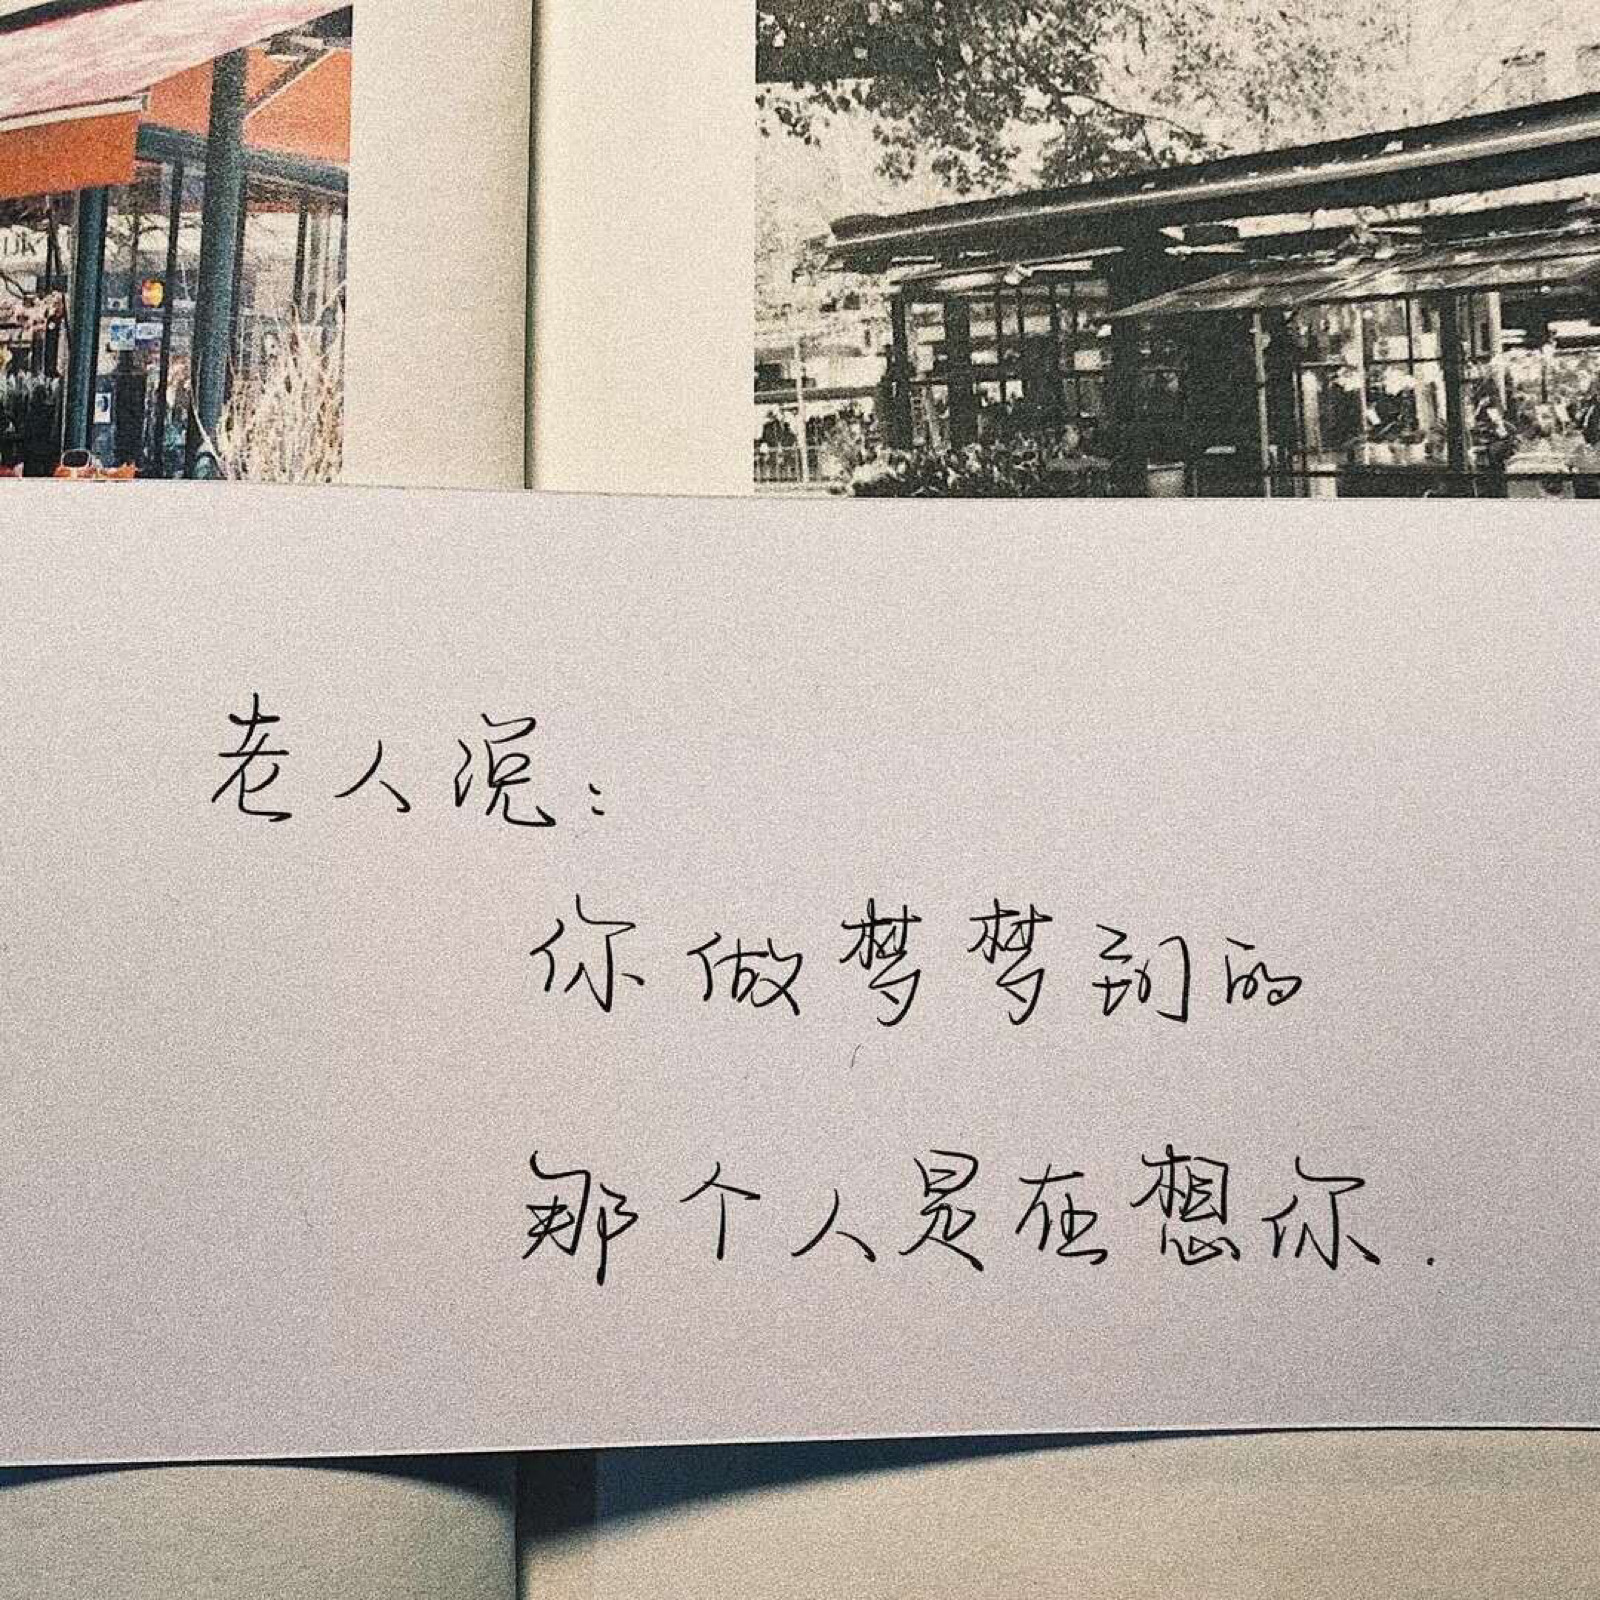 老人说：
你做梦梦到的
那个人是在想你.